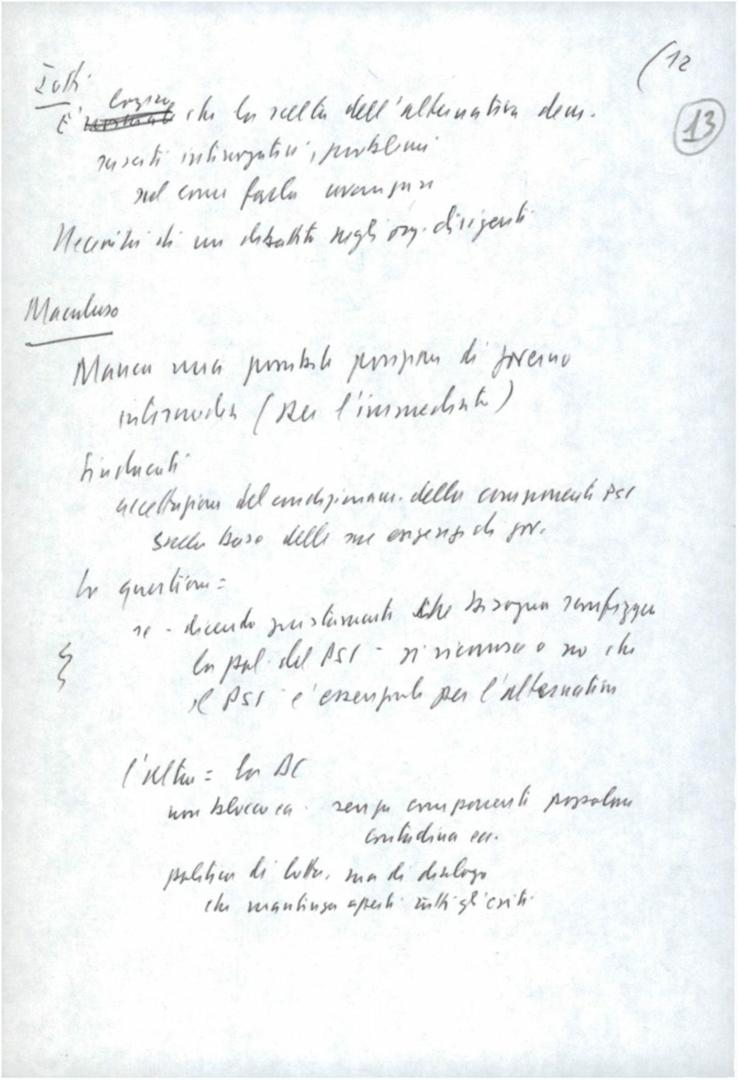 (12
13
Iotti
logico
E' che la scelta dell'alternativa dem.
susciti interrogativi, problemi
sul come farla avanzare
Necessità di un dibattito negli org. dirigenti
Macaluso
Manca una possibile posizione di governo
intermedia (per l'immediato)
Sindacati
accettazione del condizionam. della componente PSI
sulla base delle sue esigenze di gov.
La questione =
se - dicendo giustamente che bisogna sconfiggere
la pol. del PSI - si riconosce o no che
il PSI è essenziale per l'alternativa
l'altra = la DC
non blocco ca. senza componenti popolari
contadina ecc.
politica di lotta, ma di dialogo
che mantenga aperti tutti gli esiti